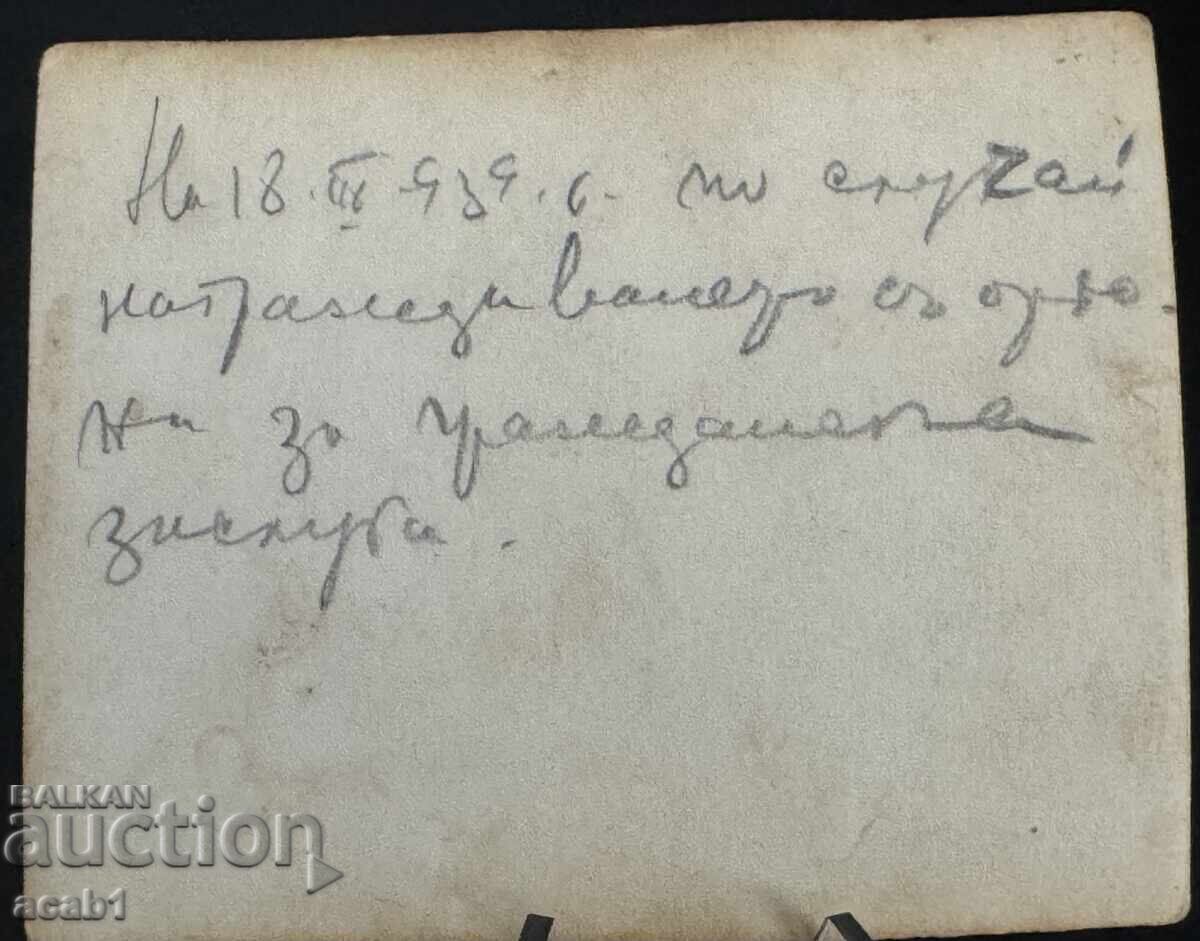 На 18.III.939.г. по случай
награждаването съ орде-
на за гражданска
заслуга.
BALKAN
auction
acab1